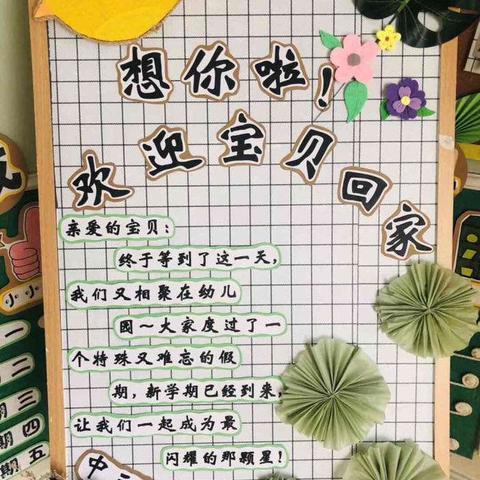 想你啦！
欢迎宝贝回家
亲爱的宝贝：
终于等到了这一天，
我们又相聚在幼儿
园～大家度过了一
个特殊又难忘的假
期，新学期已经到来，
让我们一起成为最
闪耀的那颗星！
中
小小
一
二
三
期四
期五